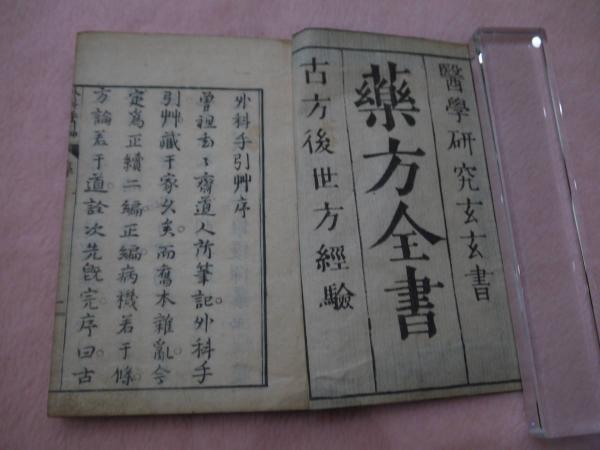 醫學研究玄玄書
藥方全書
古方後世方經驗
外科手引艸序
曾祖玄々齋道人所筆記外科手
引艸藏于家久矣。而舊本雜亂今
定寫正續二編。正編病機若于條。
方論若于道。詮次先旣完。序曰古